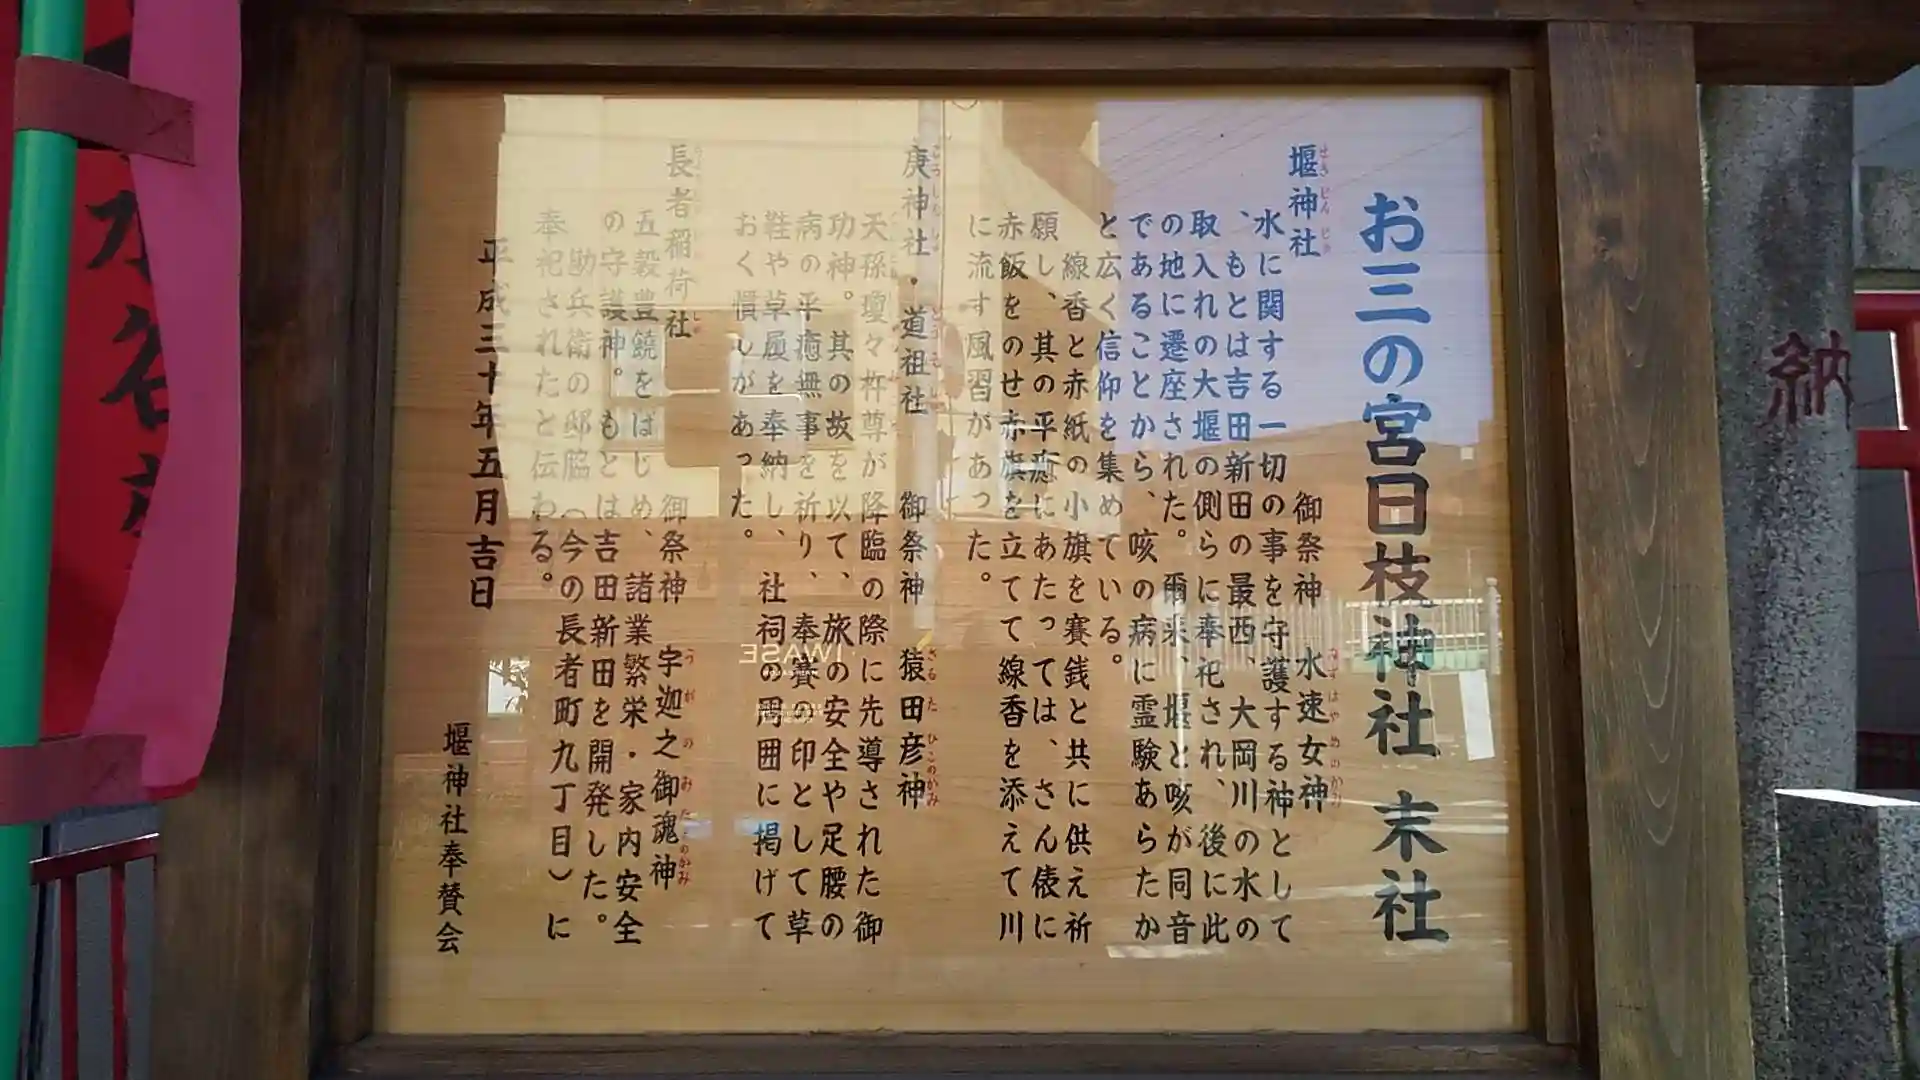 お三の宮日枝神社 末社
堰神社 御祭神 水速女神
水に関する一切の事を守護する神として
、もとは吉田新田の最西、大岡川の水の
取入れの大堰の側らに奉祀され、後に此
の地に遷座された。爾来、堰と咳が同音
であることから、咳の病に霊験あらたか
と広く信仰を集めている。
線香と赤紙の小旗を賽銭と共に供え祈
願し、其の平癒にあたっては、さん俵に
赤飯をのせ赤旗を立てて線香を添えて川
に流す風習があった。
庚神社・道祖社 御祭神 猿田彦神
天孫瓊々杵尊が降臨の際に先導された御
功神。其の故を以て、旅の安全や足腰の
病の平癒無事を祈り、奉賽の印として草
鞋や草履を奉納し、社祠の周囲に掲げて
おく慣しがあった。
長者稲荷社 御祭神 宇迦之御魂神
五穀豊饒をはじめ、諸業繁栄・家内安全
の守護神。もとは吉田新田を開発した。
勘兵衛の邸脇（今の長者町九丁目）に
奉祀されたと伝わる。
平成三十年五月吉日
堰神社奉賛会
納
IWASE